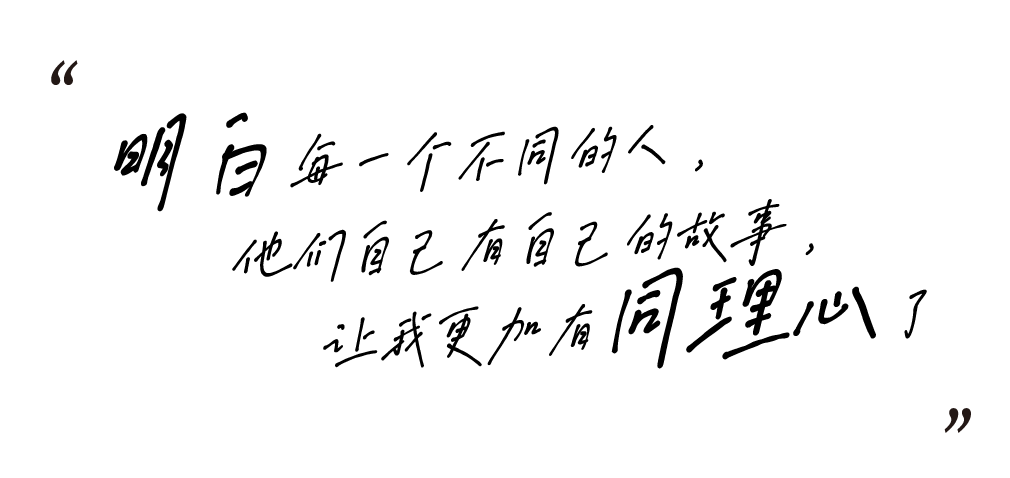 “
明白每一个不同的人，
他们自己有自己的故事，
让我更加有同理心了
”